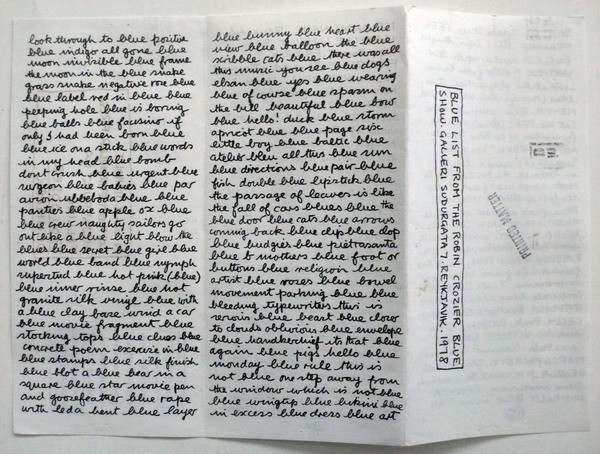 look through to blue positive
blue indigo all gone blue
moon invisible blue frame
the moon in the blue snake
grass snake negative rose blue
blue label red in blue blue
peeping hole blue is boring
blue balls blue focusing if
only I had been born blue
blue ice on a stick blue words
in my head blue bomb
dont crush blue urgent blue
surgeon blue babies blue par
avion ubbeboda blue blue
panties blue apple ox blue
blue crew naughty sailors go
out like a blue light blow the
blues blue secret blue girl blue
world blue band blue nymph
supertud blue hot pink (blue)
blue inner rinse blue hot
granite silk vinyl blue with
a blue clay base wind a car
blue movie fragment blue
stocking tops blue clues blue
concrete poem exercise in blue
blue stamps blue silk finish
blue blot a blue bear in a
square blue star movie pen
and goosefeather blue rape
with leda bent blue layer
blue bunny blue heart blue
view blue balloon the blue
scribble cats blue there was all
this music you see blue dogs
elsan blue yes blue wearing
blue of course blue spasm on
the bill beautiful blue bow
blue hello! duck blue storm
apricot blue blue page six
little boy blue baltic blue
atelier bleu all this blue sun
blue directions blue pair blue
fish double blue lipstick blue
the passage of leaves is like
the fall of cars blues blue the
blue door blue cats blue arrows
coming back blue clips blue dop
blue budgies blue pietrasanta
blue b mothers blue foot or
buttons blue religion blue
artist blue roses blue bowel
movement parking blue blue
bleeding typewriters this is
serious blue beast blue closer
to clouds oblivious blue envelope
blue handkerchief its that blue
again blue pigs hello blue
monday blue rule this is
not blue one step away from
the window which is not blue
blue wingtip blue bikini blue
in excess blue dress blue art
BLUE LIST FROM THE ROBIN CROZIER BLUE
SHOW. GALLERI SUDURGATA 7. REYKJAVIK. 1978
PRINTED MATTER